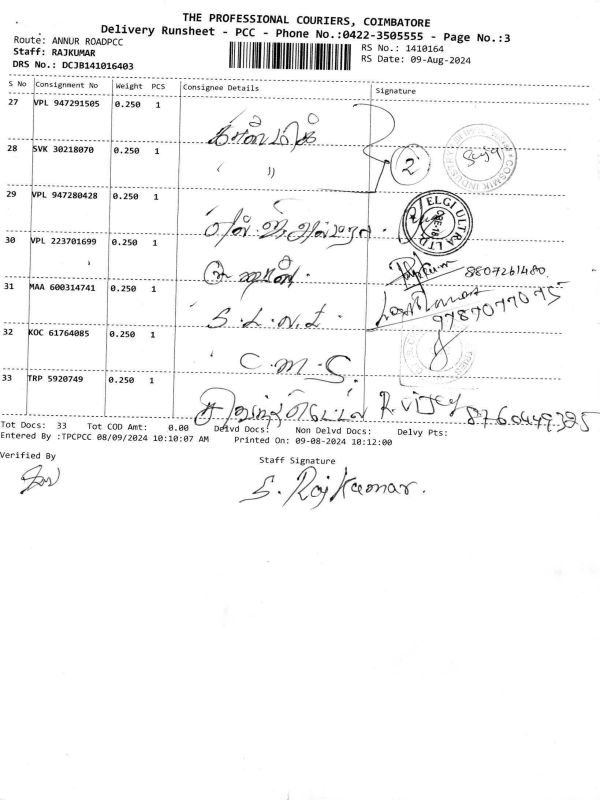 THE PROFESSIONAL COURIERS, COIMBATORE
Delivery Runsheet - PCC - Phone No.:0422-3505555 - Page No.:3
Route: ANNUR ROADPCC
RS No.: 1410164
Staff: RAJKUMAR
RS Date: 09-Aug-2024
DRS No.: DCJB141016403
S No Consignment No Weight PCS Consignee Details Signature
27 VPL 947291505 0.250 1
28 SVK 30218070 0.250 1 " 2
COSMIK INDUS
29 VPL 947280428 0.250 1
ELGI ULTRA LTD
30 VPL 223701699 0.250 1
8807261480
31 MAA 600314741 0.250 1 S. L. N. I
9787077075
32 KOC 61764085 0.250 1 C. M. S.
33 TRP 5920749 0.250 1 R. Vijay 8760449325
Tot Docs: 33 Tot COD Amt: 0.00 Delvd Docs: Non Delvd Docs: Delvy Pts:
Entered By :TPCPCC 08/09/2024 10:10:07 AM Printed On: 09-08-2024 10:12:00
Verified By
Staff Signature
S. Rajkumar.